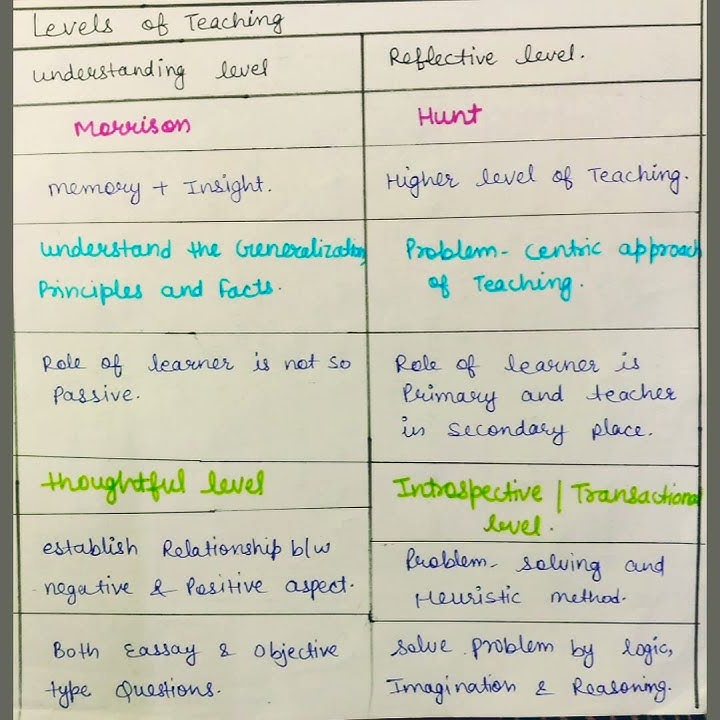 Levels of Teaching
understanding level
Reflective level.
Morrison
Hunt
memory + Insight.
Higher level of Teaching.
understand the Generalization,
Principles and facts.
Problem - centric approach
of Teaching.
Role of learner is not so
Passive.
Role of learner is
Primary and teacher
in secondary place.
thoughtful level
Introspective / Transactional
level.
establish Relationship b/w
negative & Positive aspect.
Problem - solving and
Heuristic method.
Both Eassay & objective
type Questions.
solve problem by logic,
Imagination & Reasoning.